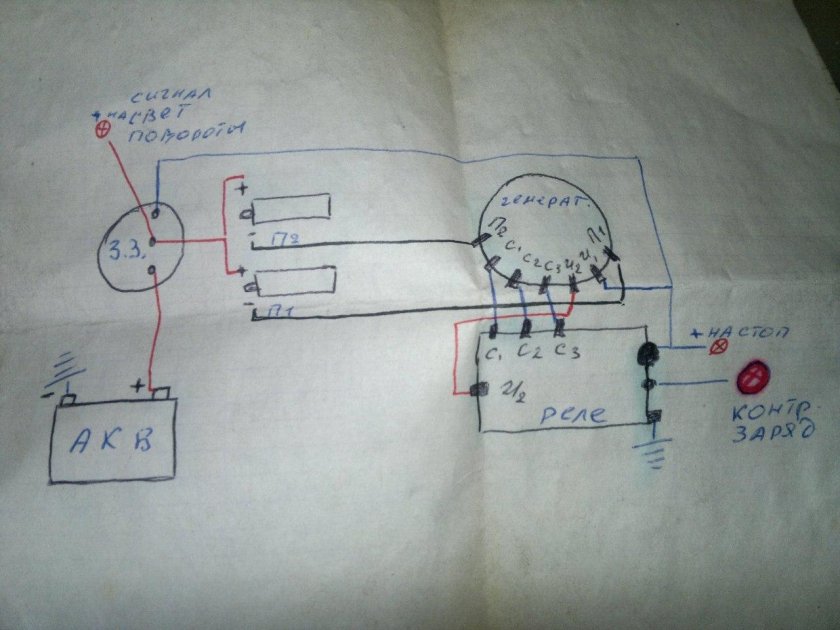 СИГНАЛ
+ НА СВЕТ
ПОВОРОТЫ
З.З.
+
-
П2
+
-
П1
генерат.
П2
С1
С2
С3
И2
И1
П1
С1
С2
С3
И/2
реле
+ НА СТОП
КОНТР.
ЗАРЯД
-
+
АКВ